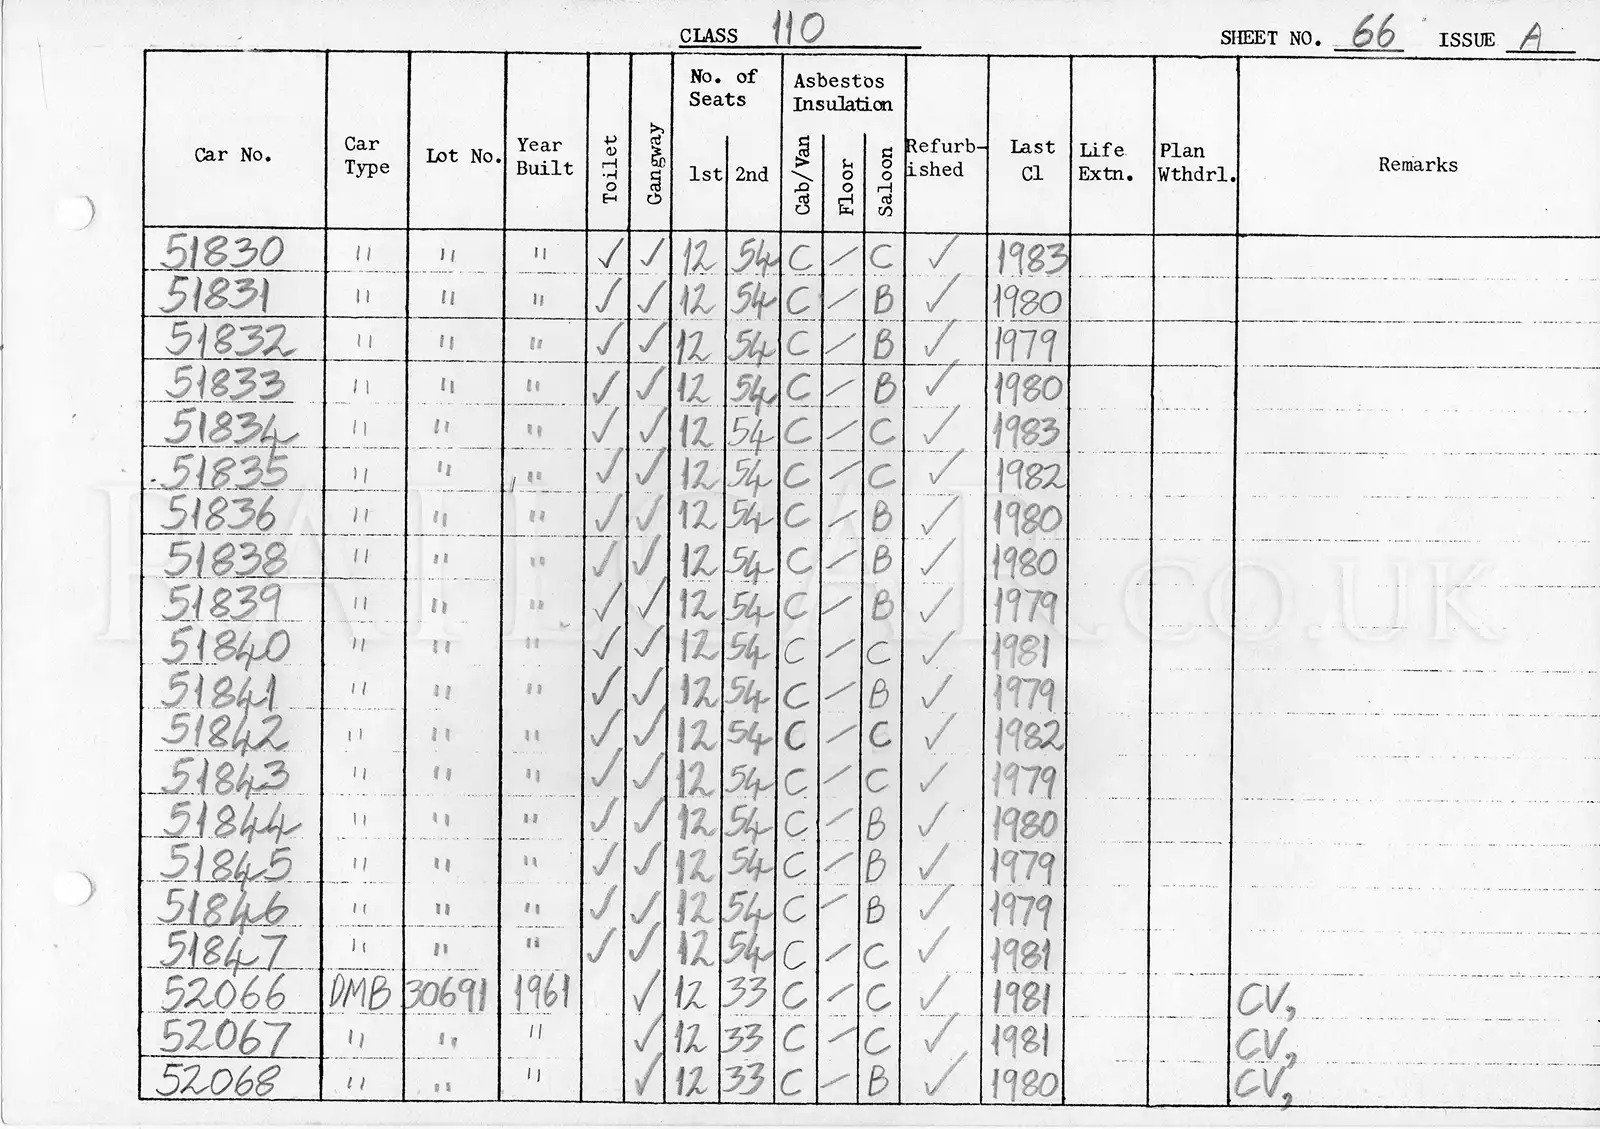 CLASS 110 SHEET NO. 66 ISSUE A
Car No. Car Type Lot No. Year Built Toilet Gangway No. of Seats 1st 2nd Asbestos Insulation Cab/Van Floor Saloon Refurb-ished Last Cl Life Extn. Plan Wthdrl. Remarks
51830 " " " ✓ ✓ 12 54 C — C ✓ 1983
51831 " " " ✓ ✓ 12 54 C — B ✓ 1980
51832 " " " ✓ ✓ 12 54 C — B ✓ 1979
51833 " " " ✓ ✓ 12 54 C — B ✓ 1980
51834 " " " ✓ ✓ 12 54 C — C ✓ 1983
51835 " " " ✓ ✓ 12 54 C — C ✓ 1982
51836 " " " ✓ ✓ 12 54 C — B ✓ 1980
51838 " " " ✓ ✓ 12 54 C — B ✓ 1980
51839 " " " ✓ ✓ 12 54 C — B ✓ 1979
51840 " " " ✓ ✓ 12 54 C — C ✓ 1981
51841 " " " ✓ ✓ 12 54 C — B ✓ 1979
51842 " " " ✓ ✓ 12 54 C — C ✓ 1982
51843 " " " ✓ ✓ 12 54 C — C ✓ 1979
51844 " " " ✓ ✓ 12 54 C — B ✓ 1980
51845 " " " ✓ ✓ 12 54 C — B ✓ 1979
51846 " " " ✓ ✓ 12 54 C — B ✓ 1979
51847 " " " ✓ ✓ 12 54 C — C ✓ 1981
52066 DMB 30691 1961 ✓ 12 33 C — C ✓ 1981 CV,
52067 " " " ✓ 12 33 C — C ✓ 1981 CV,
52068 " " " ✓ 12 33 C — B ✓ 1980 CV,
RAILCAR.CO.UK